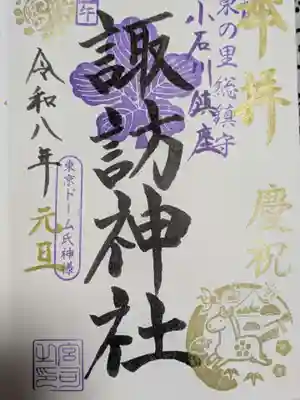 奉拝
慶祝
泉の里総鎮守
小石川鎮座
諏訪神社
午
令和八年
元旦
東京ドーム氏神様